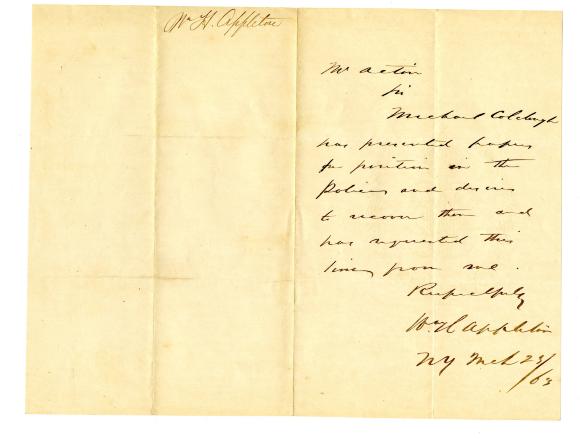 Wm H. Appleton
Mr Acton
Sir
Michael
has presented papers
for position in the
Police and desires
to recover them and
has requested this
from me.
Respectfully
Wm H Appleton
NY Mch 23/63